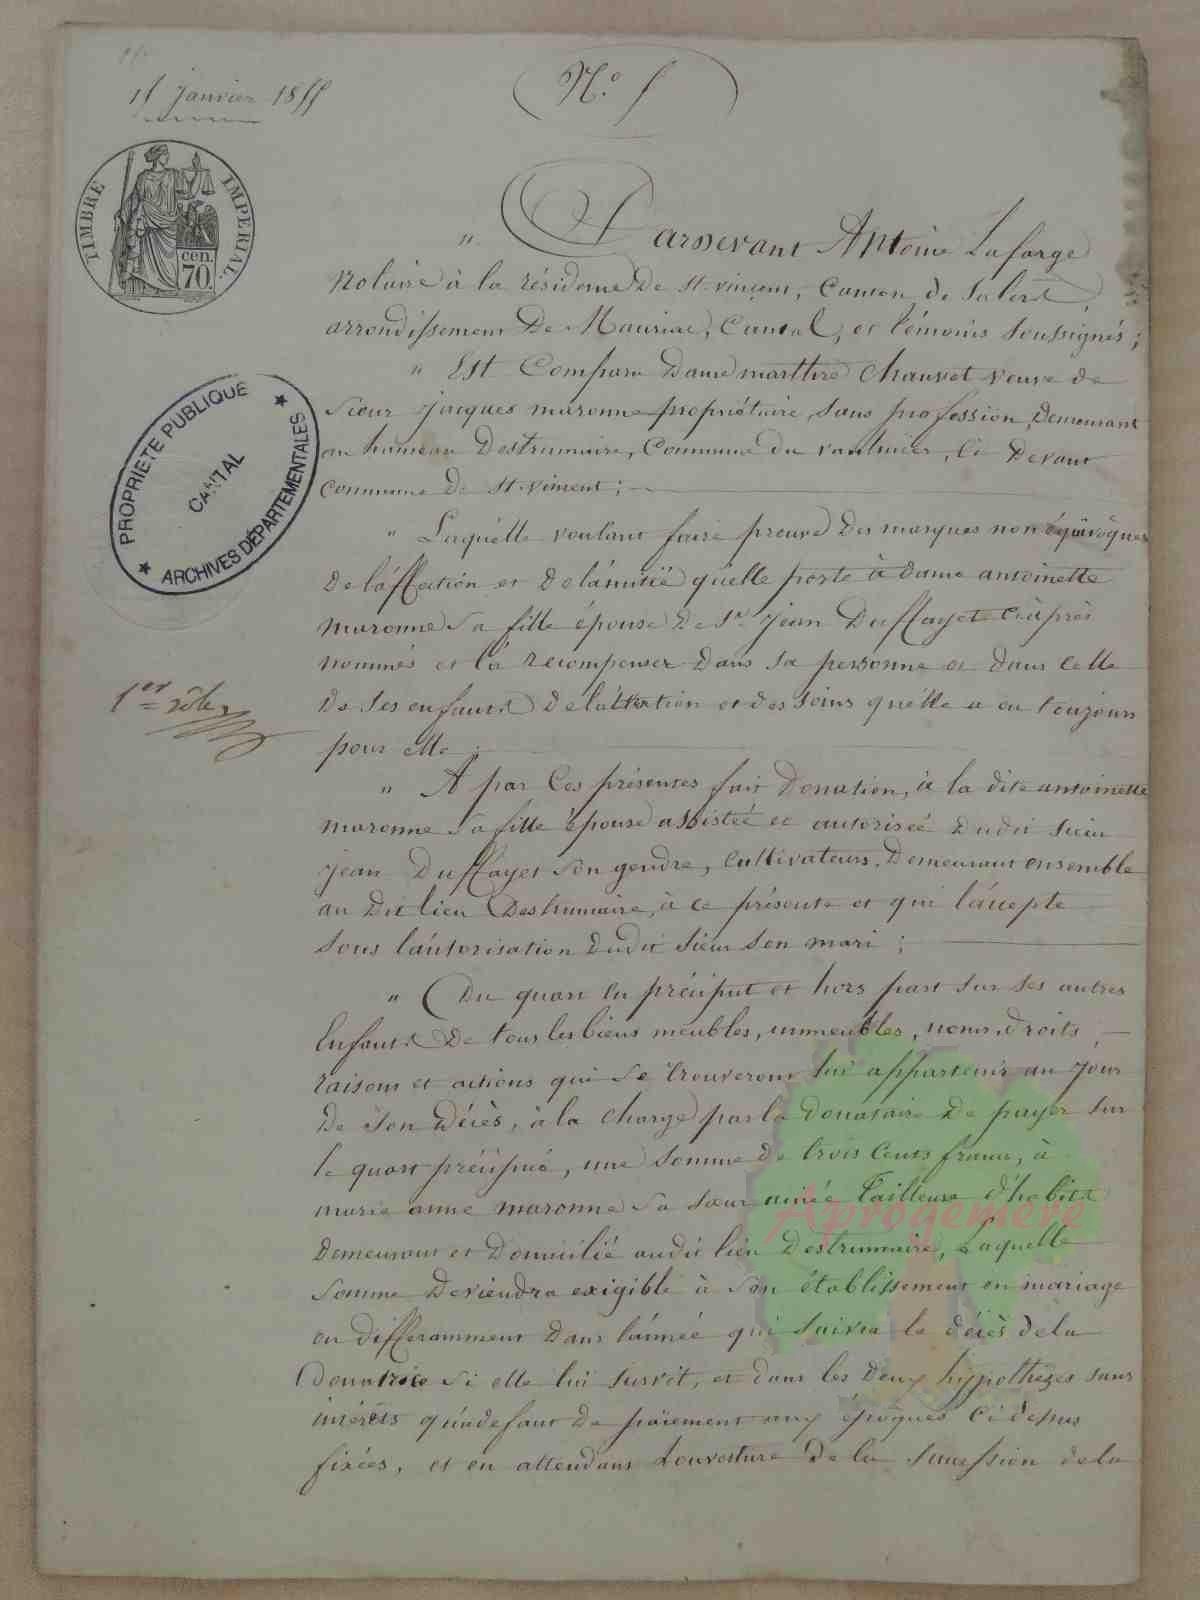 15 Janvier 1855
N.° 5
TIMBRE IMPERIAL.
cen.
70.
PROPRIETE PUBLIQUE
CANTAL
ARCHIVES DÉPARTEMENTALES
1er rôle
" Pardevant Antoine Lafarge
Notaire à la résidence De St-vincent, Canton de Salers
arrondissement De Mauriac, Cantal, et témoins soussignés ;
" Est Comparu Dame marthre Chauvet veuve de
Sieur Jacques maronne propriétaire, sans profession, Demeurant
au hameau Destrumaire, Commune du vaulmier, Ci Devant
Commune de St-vincent ;
" Laquelle voulant faire preuve Des marques non équivoques
De l'affection et De l'amitié qu'elle porte à dame antoinette
maronne Sa fille épouse De Sr. Jean Duffayet ci après
nommés et la recompenser Dans Sa personne et dans Celle
De Ses enfants De l'attention et des Soins qu'elle a eu toujours
pour elle ;
" A par Ces présentes fait Donation, à la dite antoinette
maronne Sa fille épouse assistée et autorisée Dudit Sieur
Jean Duffayet Son gendre, Cultivateurs, Demeurant ensemble
au Dit lieu Destrumaire, à ce présente et qui l'accepte
Sous l'autorisation Dudit Sieur Son mari ;
" Du quart en préciput et hors part Sur Ses autres
Enfants De tous les biens meubles, immeubles, noms, droits,
raisons et actions qui Se trouveront lui appartenir au Jour
De Son Décès, à la Charge par la Donataire De payer Sur
le quart précipué, une Somme De trois Cents francs, à
marie anne maronne Sa Sœur ainée tailleuse d'habits
Demeurant et Domicilié audit lieu Destrumaire, Laquelle
Somme Deviendra exigible à Son établissement en mariage
ou differamment Dans l'année qui Suivra le décès de la
Donatrice Si elle lui Survit, et dans les Deux hypothèzes sans
intérêts qu'a defaut De païement aux époques Ci dessus
fixées, et en attendant L'ouverture De la Succession de la
Aprogemere